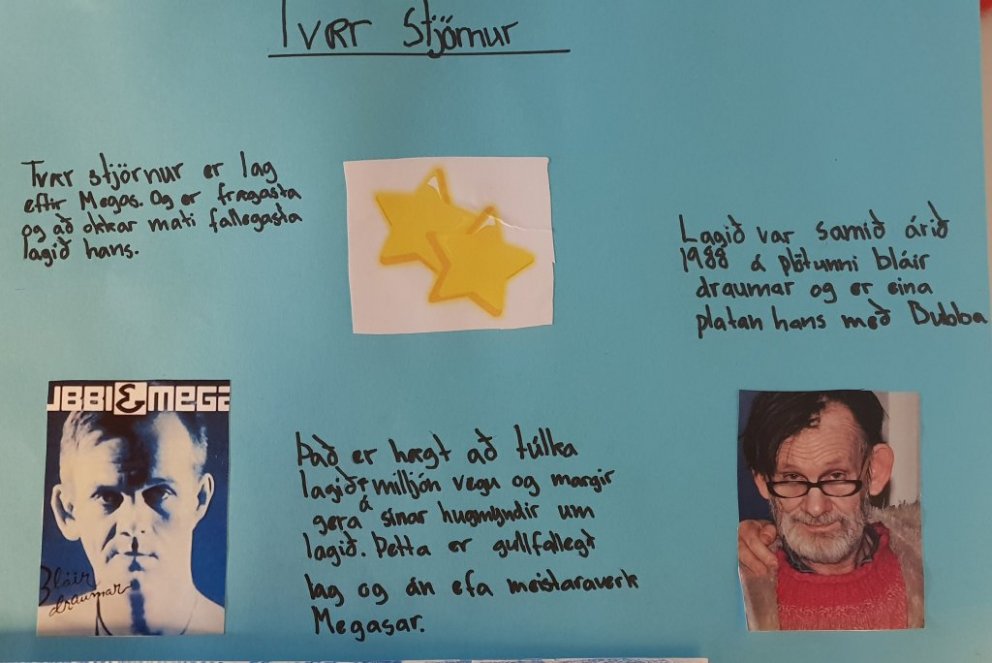 Tvær stjörnur
Tvær stjörnur er lag
eftir Megas. Og er frægasta
og að okkar mati fallegasta
lagið hans.
Lagið var samið árið
1988 á plötunni bláir
draumar og er eina
platan hans með Bubba
UBBI & MEGA
Bláir
draumar
Það er hægt að túlka
lagið á milljón vegu og margir
gera sínar hugmyndir um
lagið. Þetta er gullfallegt
lag og án efa meistaraverk
Megasar.